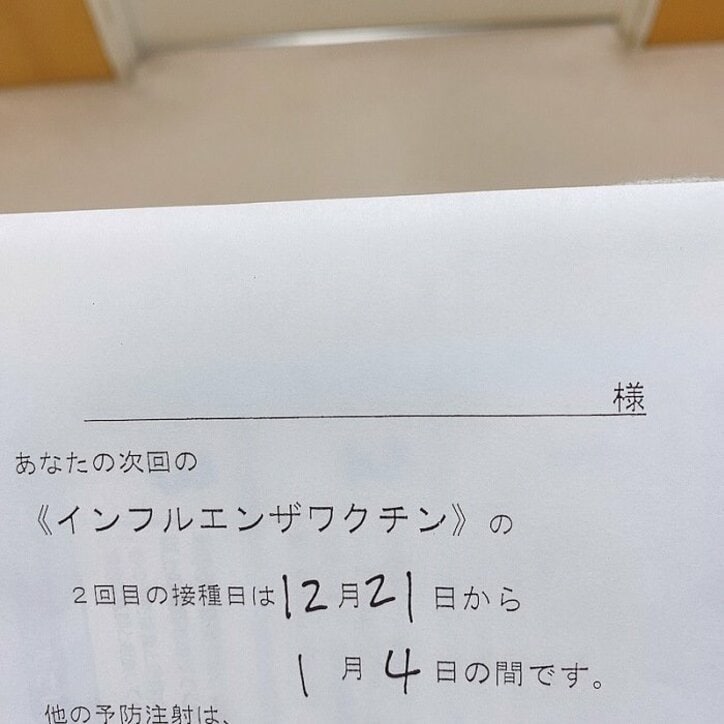 様
あなたの次回の
《インフルエンザワクチン》の
２回目の接種日は12月21日から
1月4日の間です。
他の予防注射は、